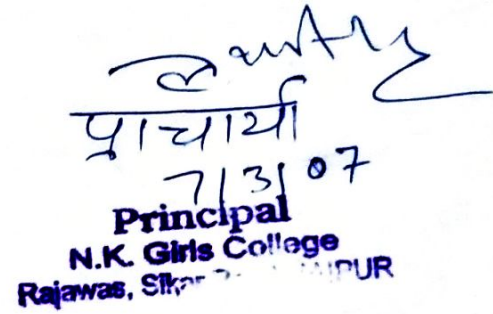 प्राचार्या
7/3/07
Principal
N.K. Girls College
Rajawas, JAIPUR